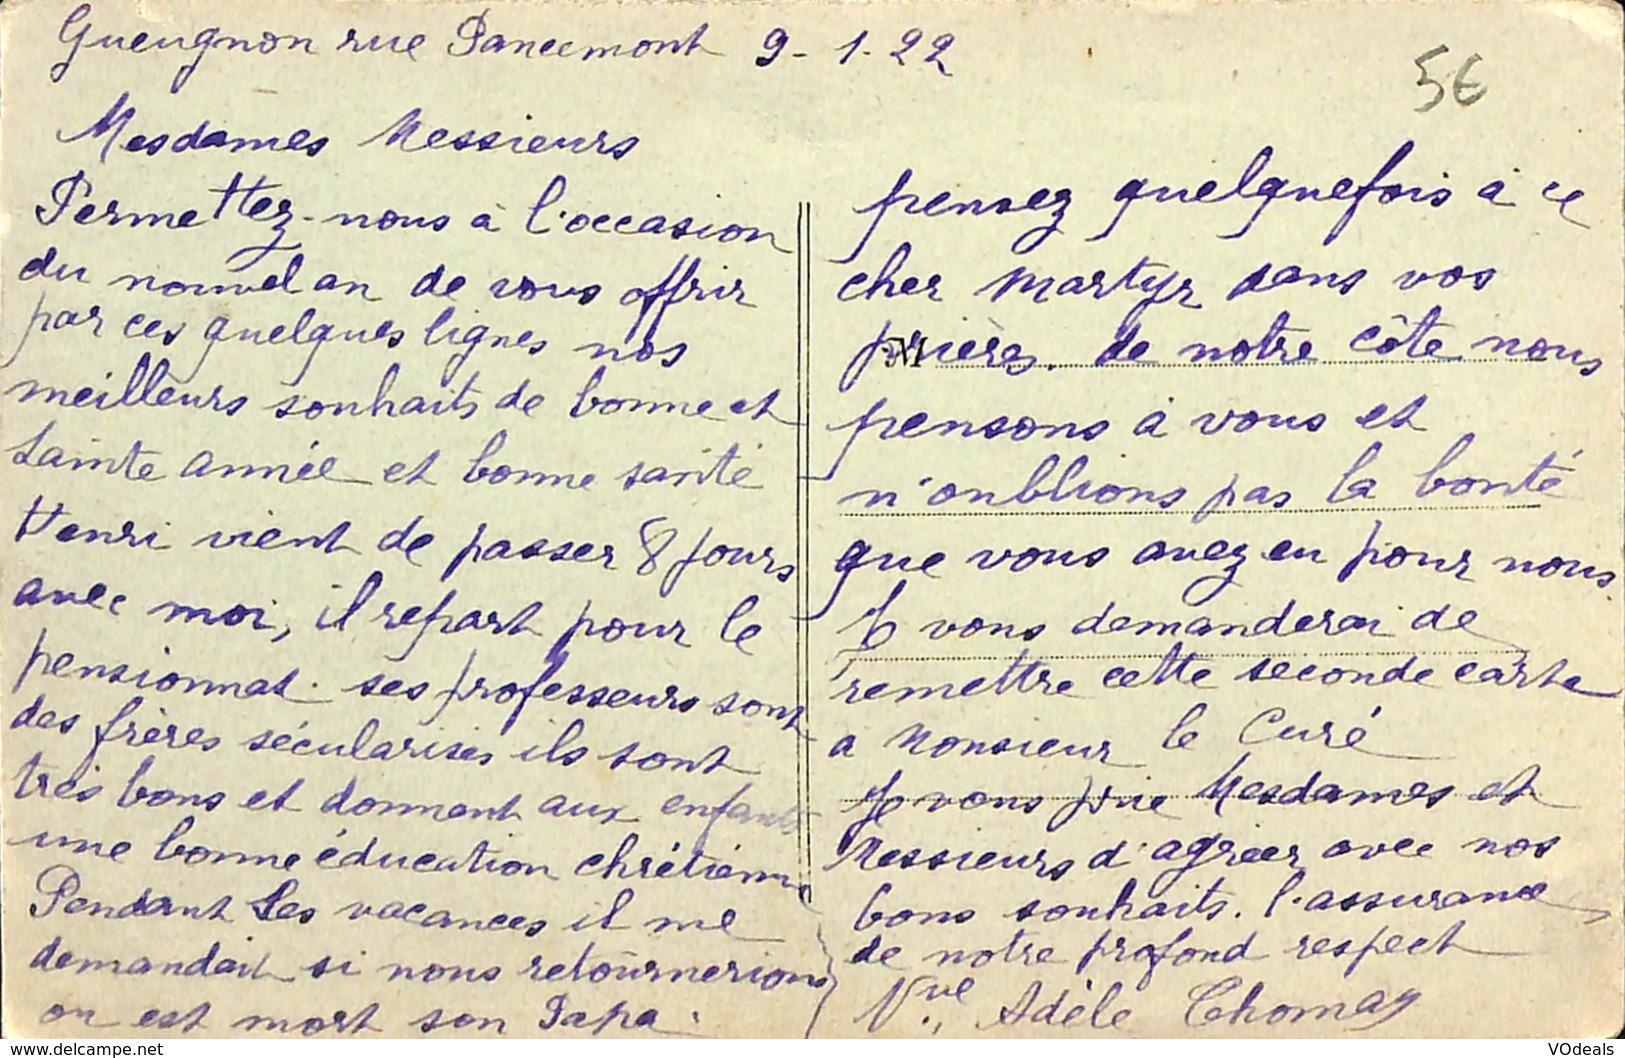 Gueugnon rue Pancemont 9-1-22
5€
Mesdames Messieurs
Permettez-nous à l'occasion
du nouvel an de vous offrir
par ces quelques lignes nos
meilleurs souhaits de bonne et
sainte année et bonne santé
Henri vient de passer 8 jours
avec moi, il repart pour le
pensionnat. ses professeurs sont
des frères sécularisés ils sont
très bons et donnent aux enfants
une bonne éducation chrétienne
Pendant les vacances il me
demandait si nous retournerions
ou est mort son Papa.
pensez quelquefois à ce
cher Martyr dans vos
prières. de notre côte nous
M
pensons à vous et
n'oublions pas la bonté
que vous avez eu pour nous.
Je vous demanderai de
remettre cette seconde carte
a Monsieur le Curé
Je vous prie Mesdames et
Messieurs d'agréer avec nos
bons souhaits. l'assurance
de notre profond respect
Vve., Adèle Thomas
delcampe.net
VOdeals